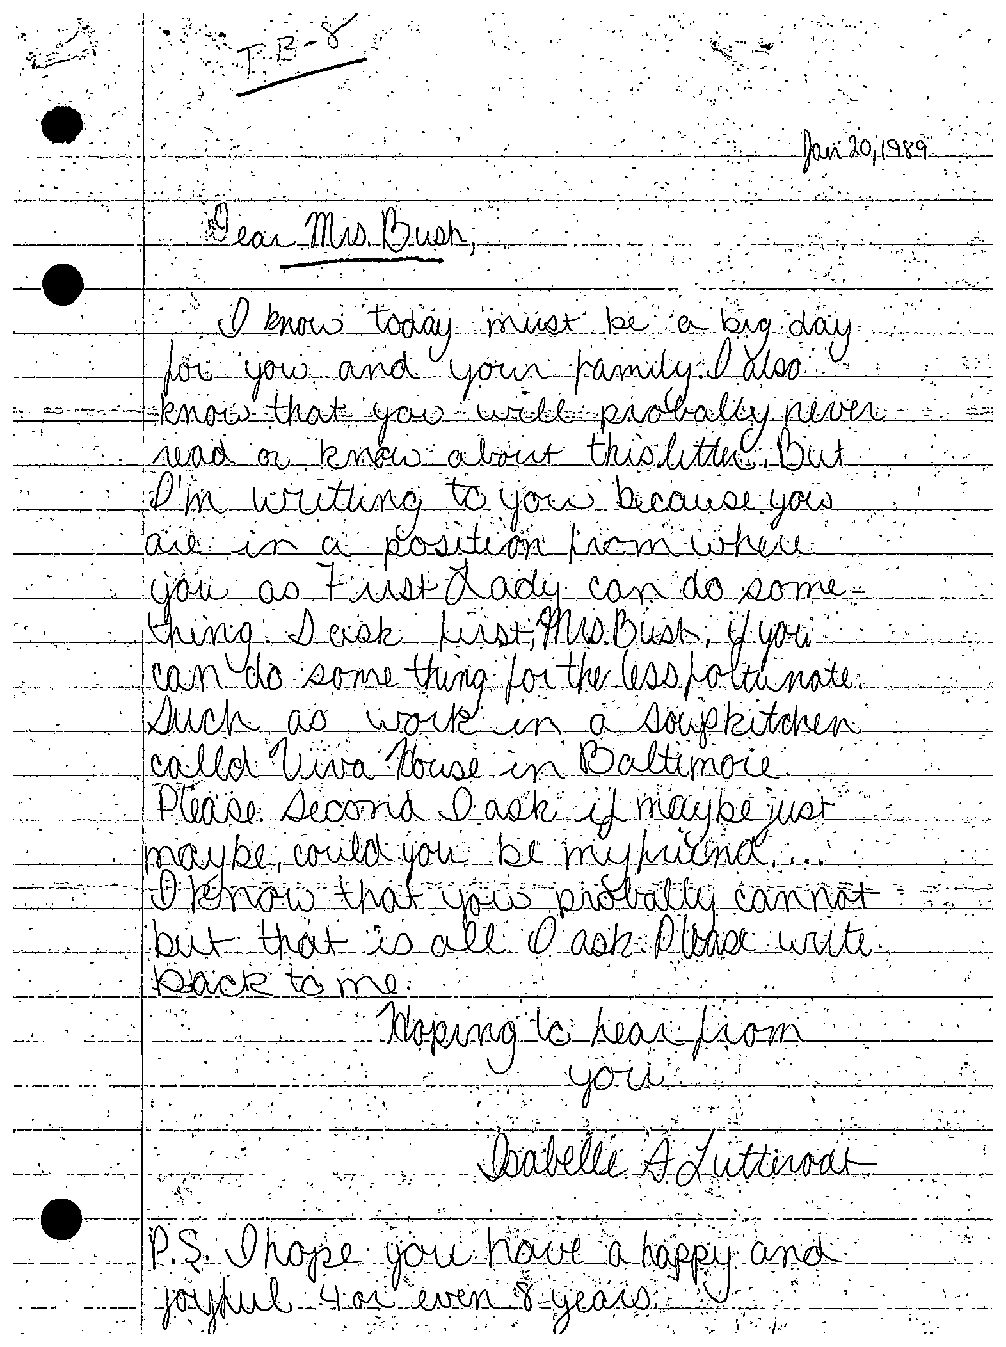 T.B-8
Jan 20, 1989
Dear Mrs. Bush,
I know today must be a big day
for you and your family. I also
know that you will probally never
read or know about this letter. But
I'm writting to you because you
are in a position from where
you as First Lady can do some-
thing. I ask first, Mrs. Bush, if you
can do something for the less fortunate.
Such as work in a soup kitchen
called Viva House in Baltimore.
Please. Second I ask if maybe just
maybe, could you be my friend....
I know that you probally cannot
but that is all I ask. Please write
back to me.
Hoping to hear from
you
Isabelle A Lutterodt
P.S. I hope you have a happy and
joyful 4 or even 8 years.